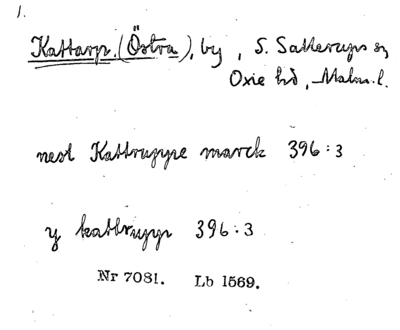 1.
Kattarp. (Östra), by, S. Sallerups sn
Oxie hd, Malm. l.
nest Kattruppe marck 396:3
y kattrupp 396:3
Nr 7081. Lb 1569.